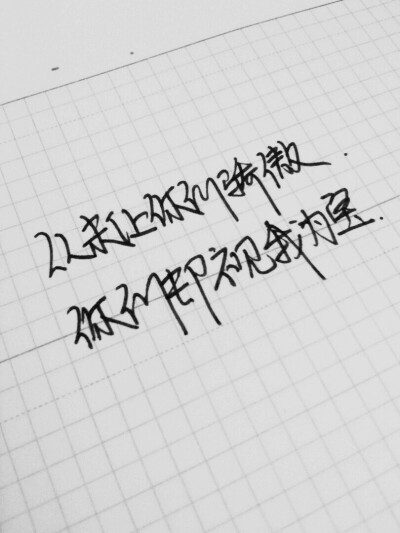 从未让你们骄傲.
你们却视我为宝.